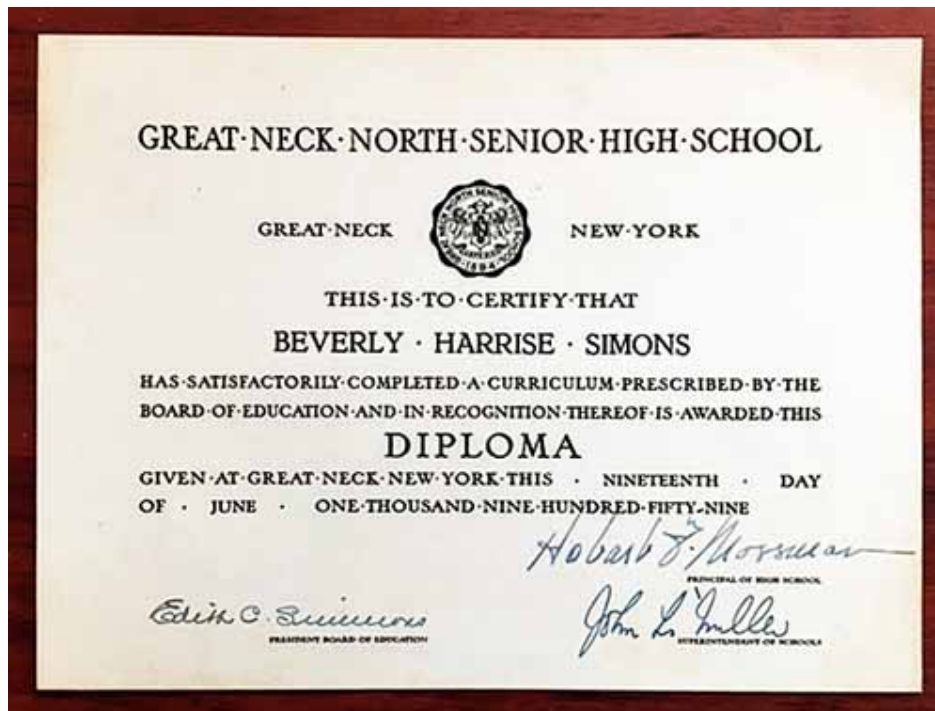 GREAT·NECK·NORTH·SENIOR·HIGH·SCHOOL
GREAT·NECK NEW·YORK
GREAT NECK NORTH SENIOR HIGH SCHOOL
1894
THIS·IS·TO·CERTIFY·THAT
BEVERLY · HARRISE · SIMONS
HAS·SATISFACTORILY·COMPLETED·A·CURRICULUM·PRESCRIBED·BY·THE
BOARD·OF·EDUCATION·AND·IN·RECOGNITION·THEREOF·IS·AWARDED·THIS
DIPLOMA
GIVEN·AT·GREAT·NECK·NEW·YORK·THIS · NINETEENTH · DAY
OF · JUNE · ONE·THOUSAND·NINE·HUNDRED·FIFTY-NINE
Hobart
PRINCIPAL OF HIGH SCHOOL
Edith C. Simmons
PRESIDENT BOARD OF EDUCATION
John L. Miller
SUPERINTENDENT OF SCHOOLS